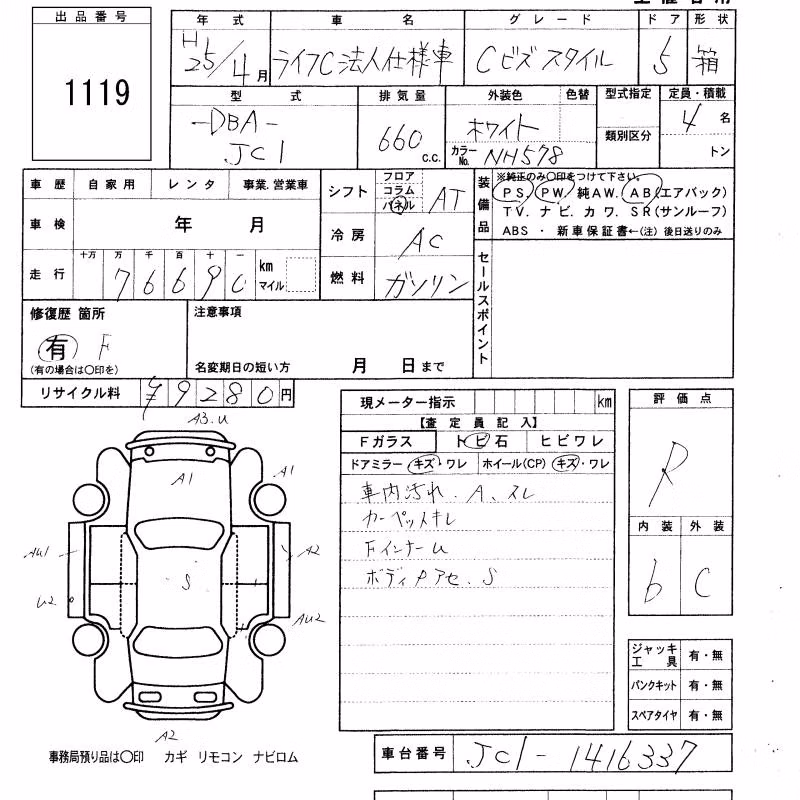 出品番号
1119
年式 車名 グレード ドア 形状
H25/4月 ライフC法人仕様車 Cビズスタイル 5 箱
型式 排気量 外装色 色替 型式指定 定員・積載
DBA-JC1 660 C.C. ホワイト 類別区分 4名
カラーNo. NH578 トン
車歴 自家用 レンタ 事業.営業車
車検 年 月
走行 十万 万 千 百 十 一 km マイル
7669
シフト フロア コラム パネル AT
冷房 AC
燃料 ガソリン
装備品
※純正のみ〇印をつけて下さい。
PS. PW. 純AW. AB(エアバック)
TV. ナビ. カワ. SR(サンルーフ)
ABS ・ 新車保証書←(注) 後日送りのみ
セールスポイント
修復歴 箇所
有 F
(有の場合は〇印を)
注意事項
名変期日の短い方 月 日まで
リサイクル料 ¥9280円
現メーター指示 km
【査定員記入】
Fガラス トビ石 ヒビワレ
ドアミラー キズ・ワレ ホイール(CP) キズ・ワレ
車内汚れ.A、スレ
カーペットキレ
FインナーU
ボディアセ.S
評価点
R
内装 外装
b C
ジャッキ工具 有・無
パンクキット 有・無
スペアタイヤ 有・無
A3.U
A1
A1
AU1
A2
S
U2
AU2
A2
事務局預り品は〇印 カギ リモコン ナビロム
車台番号 JC1-1416337